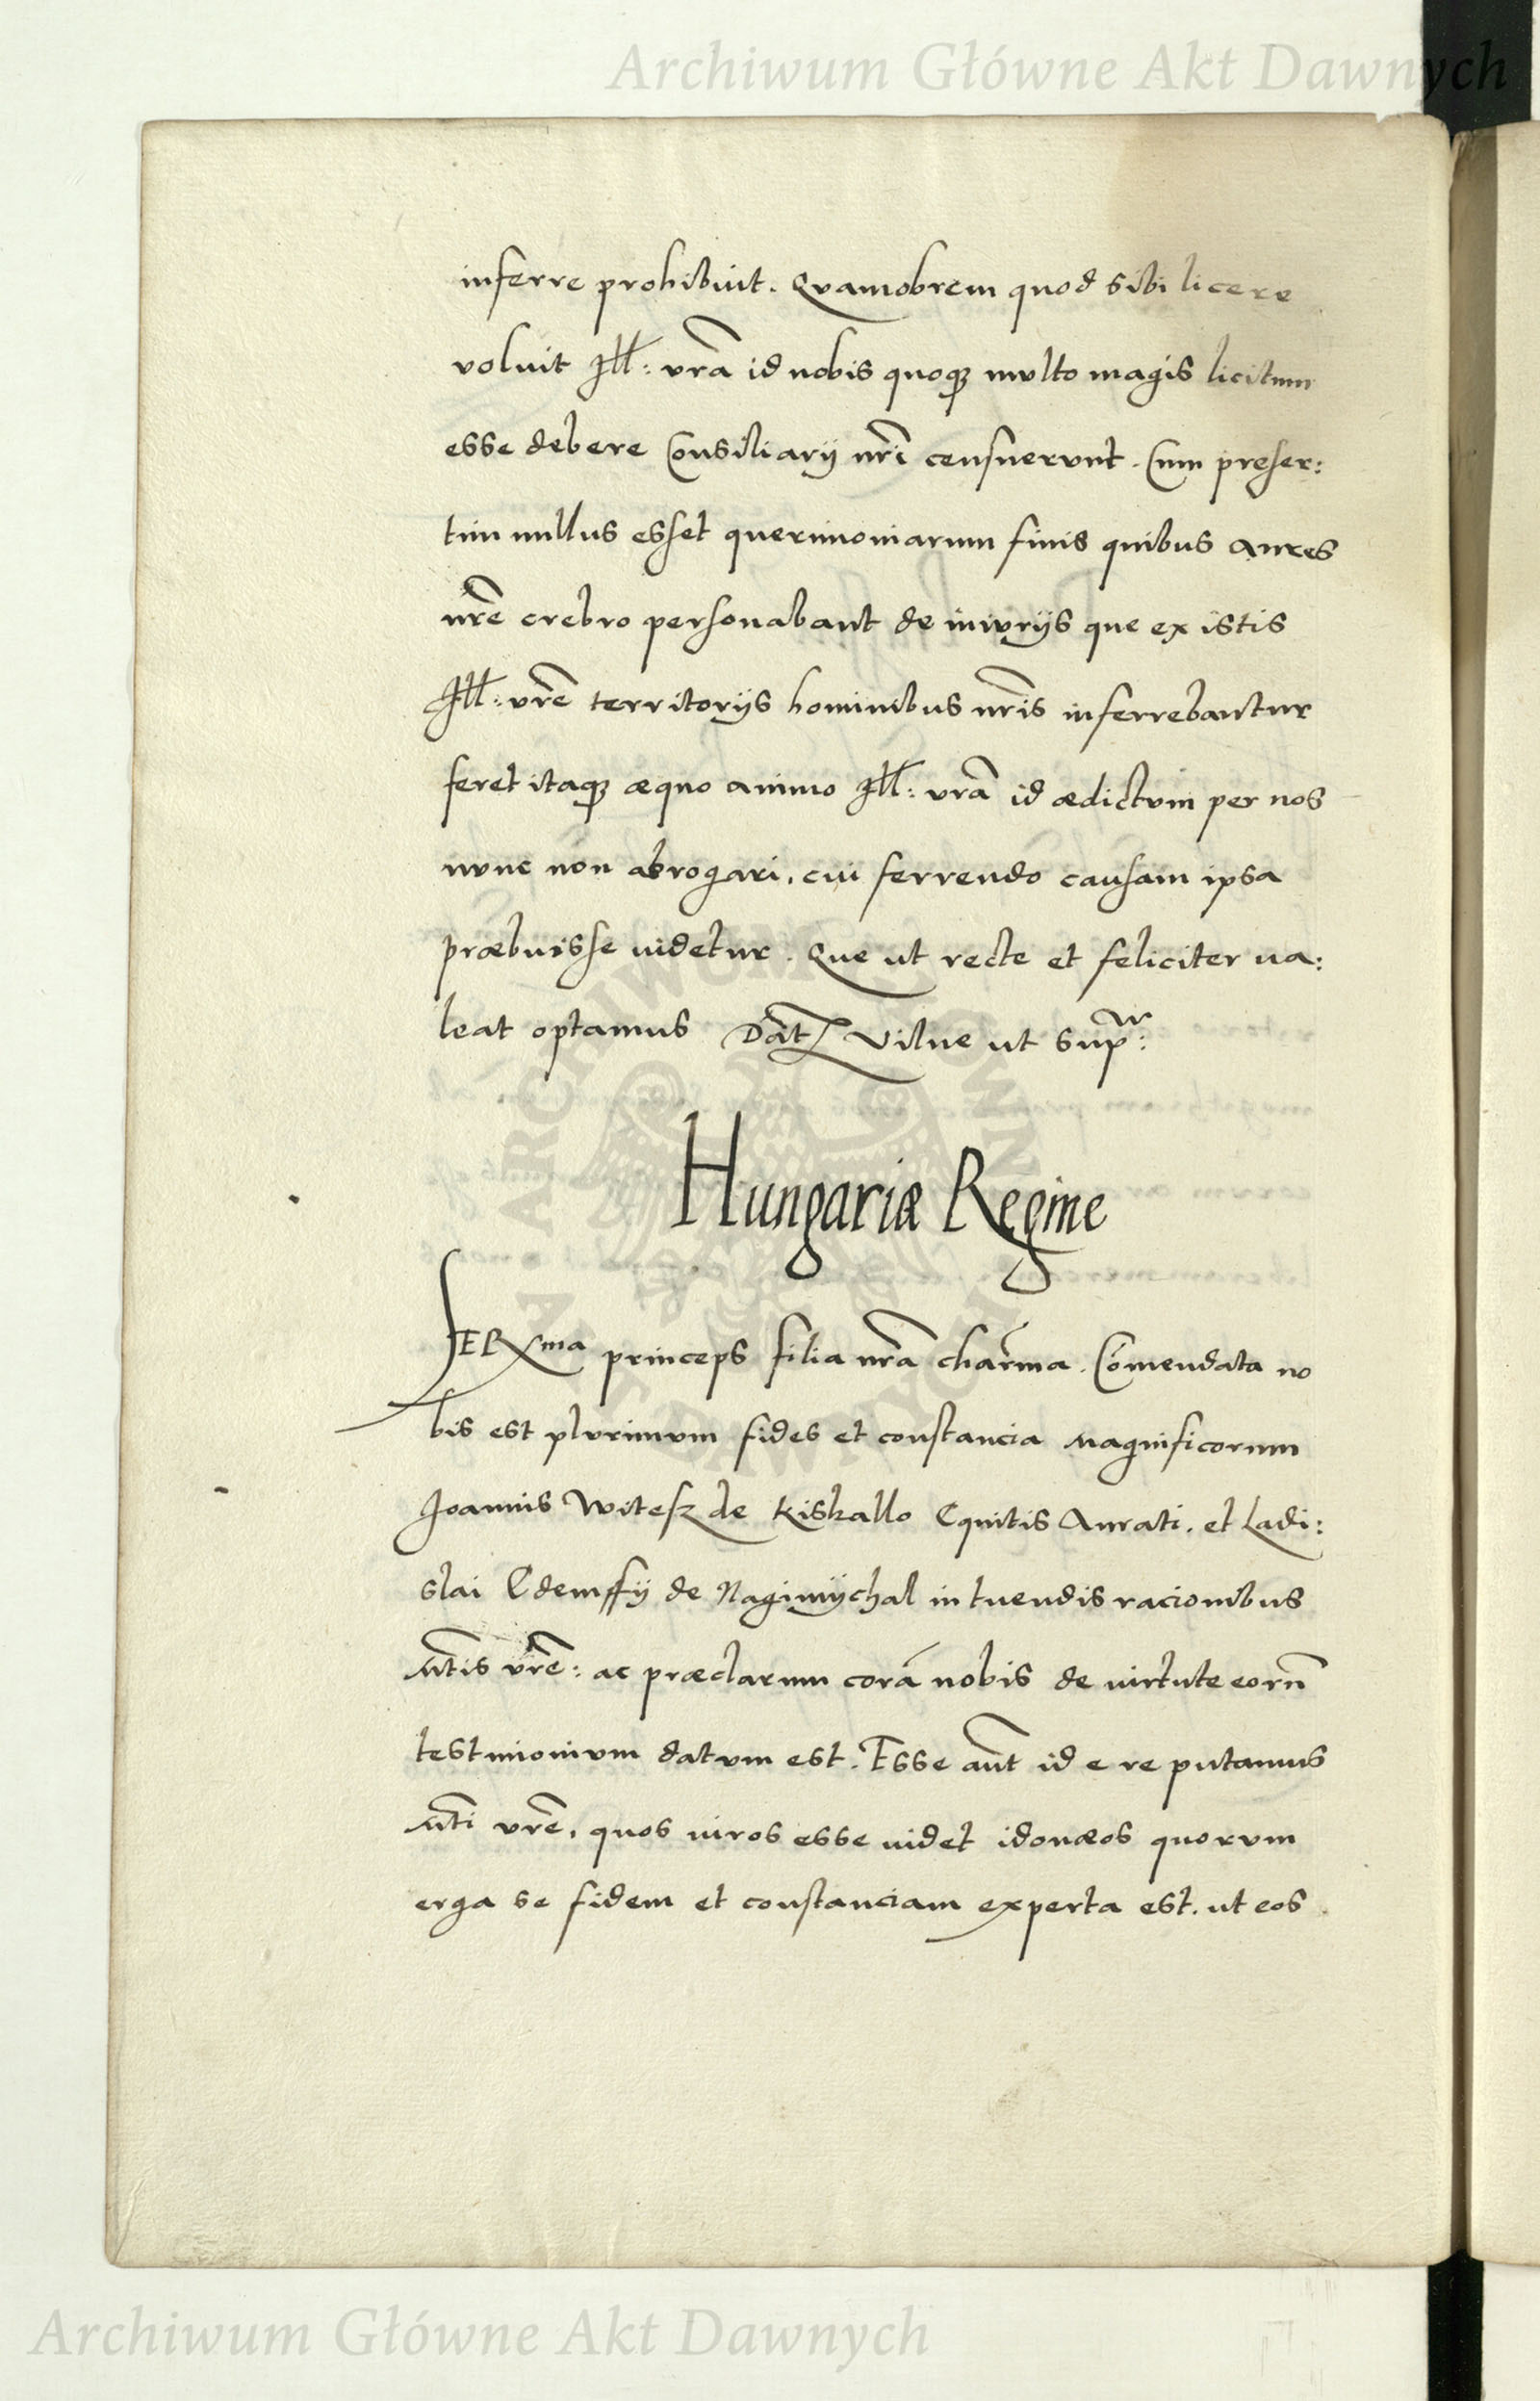 Archiwum Główne Akt Dawnych
inferre prohibuit. Quamobrem quod sibi licere
voluit Ill: vrã id nobis quoqꝫ multo magis licitum
esse debere Consiliarij nrĩ censuerunt. Cum preser:
tim nullus esset querimoniarum finis quibus aures
nrẽ crebro personabant de iniurijs que ex istis
Ill: vrẽ territorijs hominibus nrĩs inferrebantur
feret itaqꝫ æquo animo Ill: vrã id ædictum per nos
nunc non abrogari, cui ferrendo causam ipsa
præbuisse uidetur. Que ut recte et feliciter ua:
leat optamus Datꝫ Vilne ut sup:
Hungariæ Regine
SERma princeps filia nrã charma. Cõmendata no
bis est plurimum fides et constancia magnificorum
Joannis Witesz de Kiskallo Equitis Aurati, et Ladi:
slai Edemffy de Nagimychal in tuendis racionibus
Mtis vrẽ: ac præclarum corã nobis de uirtute eorũ
testimonium datum est. Esse aũt id e re putamus
Mti vrẽ, quos uiros esse uidet idonæos quorum
erga se fidem et constanciam experta est, ut eos
Archiwum Główne Akt Dawnych